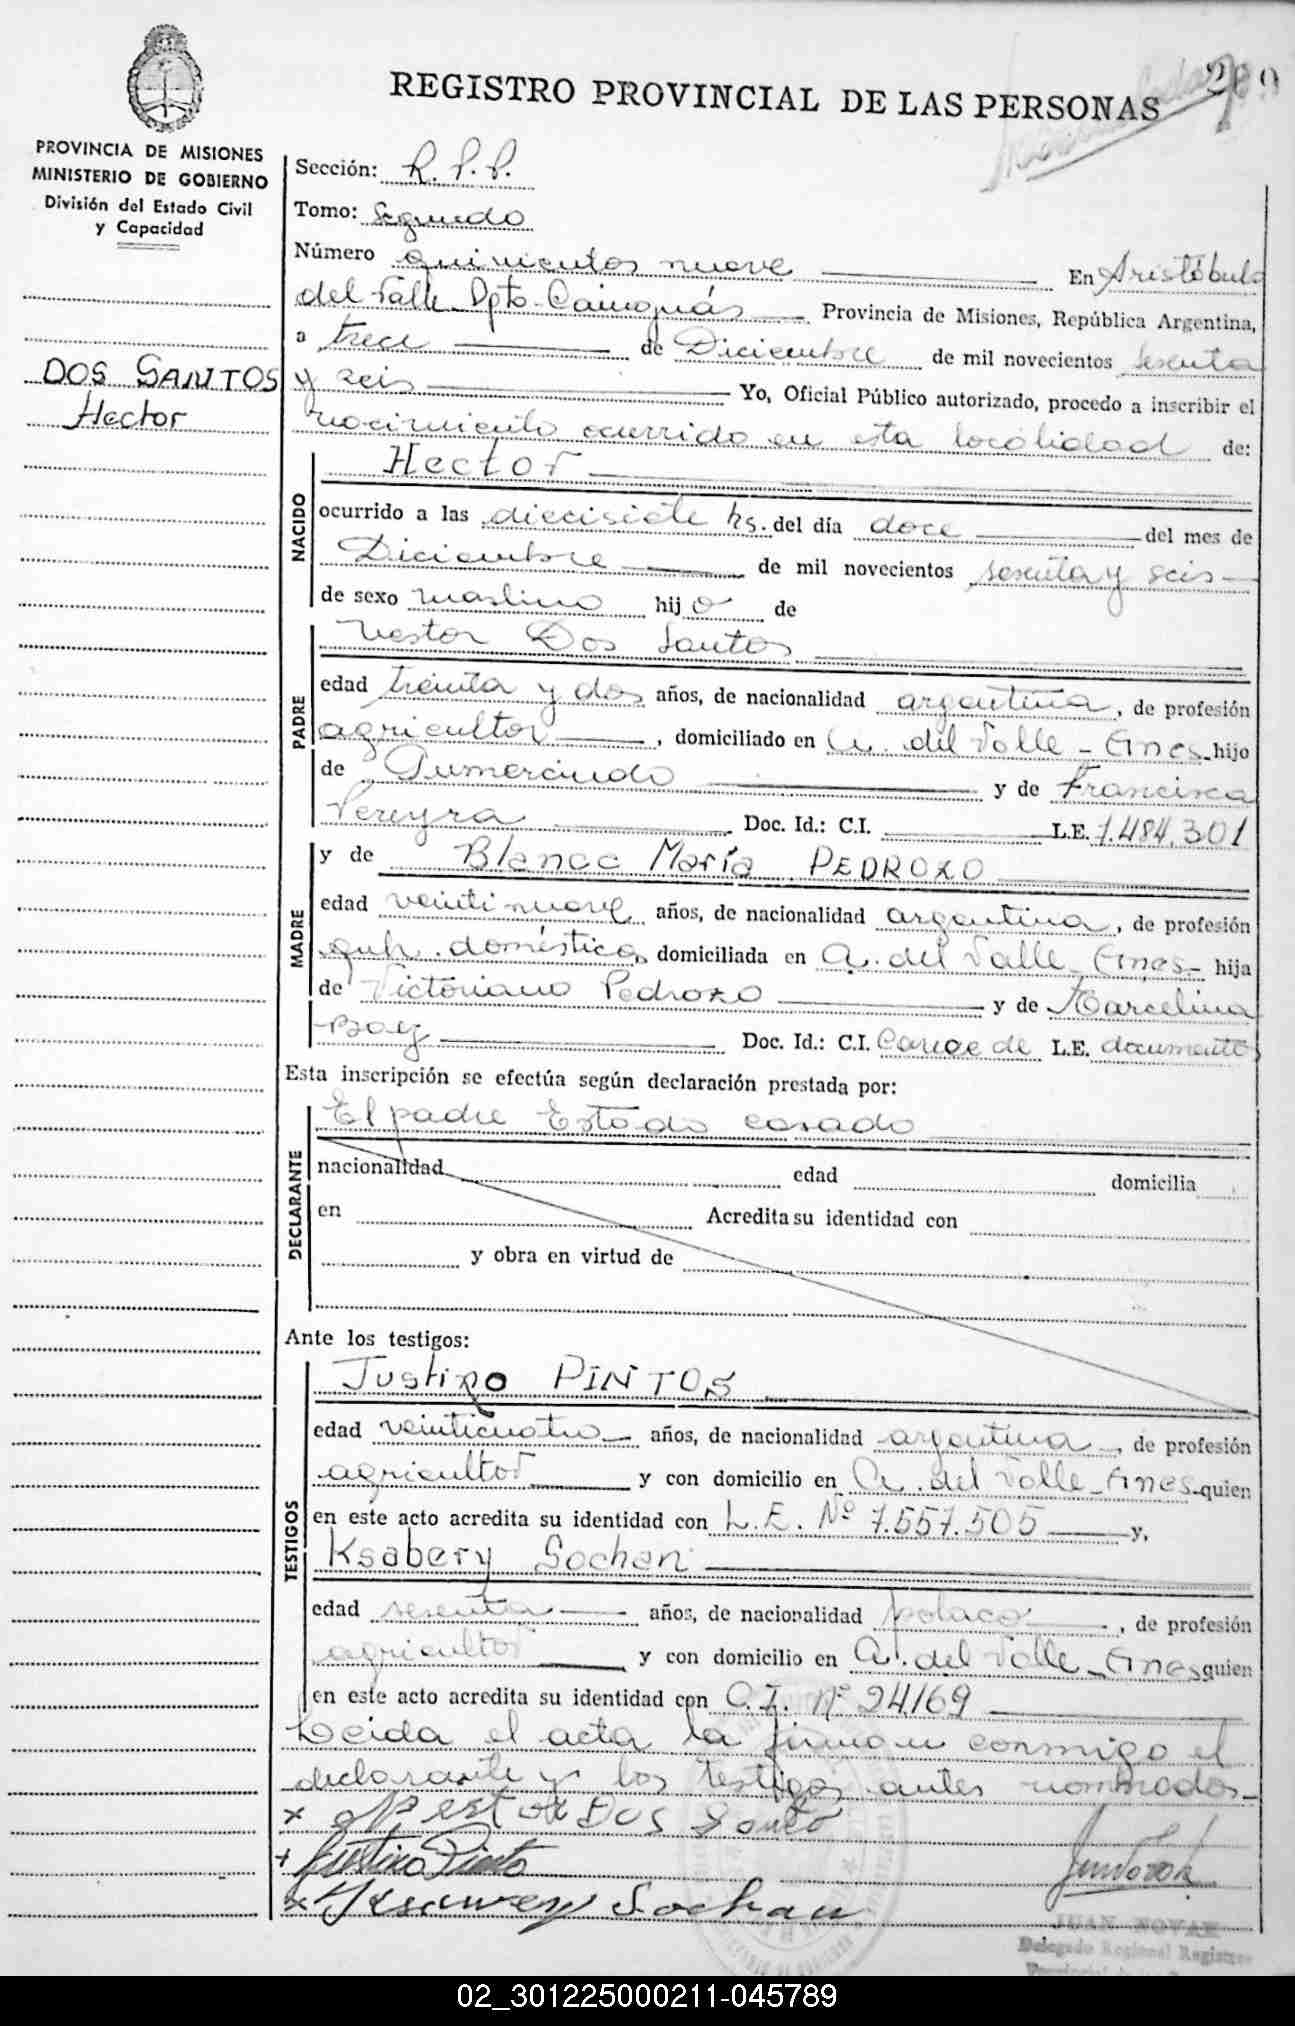 REGISTRO PROVINCIAL DE LAS PERSONAS
PROVINCIA DE MISIONES
MINISTERIO DE GOBIERNO
División del Estado Civil
y Capacidad
DOS SANTOS
Hector
Sección: R.P.P.
Tomo: Segundo
Número quinientos nueve En Aristóbulo
del Valle Dpto. Cainguás Provincia de Misiones, República Argentina,
a trece de Diciembre de mil novecientos sesenta
y seis Yo, Oficial Público autorizado, procedo a inscribir el
nacimiento ocurrido en esta localidad de:
NACIDO
Hector
ocurrido a las diecisiete hs. del día doce del mes de
Diciembre de mil novecientos sesenta y seis
de sexo maslino hijo de
PADRE
Nestor Dos Santos
edad treinta y dos años, de nacionalidad argentina, de profesión
agricultor, domiciliado en A. del Valle - Mnes. hijo
de Gumercindo y de Francisca
Pereyra Doc. Id.: C.I. L.E. 7.484.301
MADRE
y de Blanca María PEDROZO
edad veintinueve años, de nacionalidad argentina, de profesión
queh. doméstico, domiciliada en A. del Valle - Mnes - hija
de Victoriano Pedrozo y de Marcelina
Doc. Id.: C.I. Carece de L.E. documento
Esta inscripción se efectúa según declaración prestada por:
DECLARANTE
El padre Estado casado
nacionalidad edad domicilia
en Acredita su identidad con
y obra en virtud de
Ante los testigos:
TESTIGOS
Justino PINTOS
edad veinticuatro años, de nacionalidad argentina, de profesión
agricultor y con domicilio en A. del Valle - Mnes. quien
en este acto acredita su identidad con L.E. Nº 7.557.505 y,
Ksabery Sochan
edad sesenta años, de nacionalidad polaco, de profesión
agricultor y con domicilio en A. del Valle - Mnes quien
en este acto acredita su identidad con C.I. Nº 24169
Leida el acta la firman conmigo el
declarante y los testigos antes nombrados
x Nestor DOS Santo
+ Justino Pinto
x Ksawery Sochan
JUAN NOVAK
Delegado Regional Registro
02_301225000211-045789